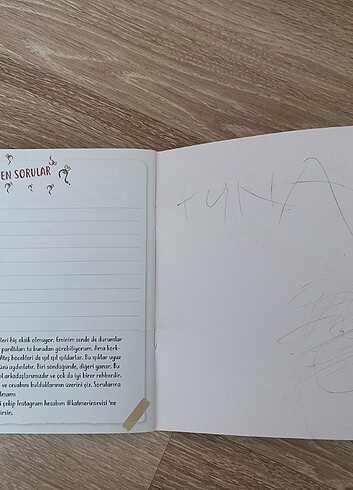 EN SORULAR
leri hiç eksik olmuyor. Eminim sende de durumlar
parıltıları ta buradan görebiliyorum. Ama kork-
Ateş böcekleri de ışıl ışıl ışıldarlar. Bu ışıklar uyuz
ünü aydınlatır. Biri söndüğünde, diğeri yanar. Bu
ol arkadaşlarımızdır ve çok da iyi birer rehberdir.
ve cevabını bulduklarının üzerini çiz. Sorularına
lmamı
i çekip Instagram hesabım @katmerinservisi 'ne
irsin.
TUNA